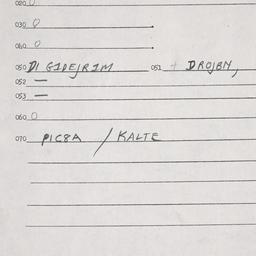 020 0
030 0
040 0
050 DI GIDEJRIM 051 + DROJBN,
052 —
053 —
060 0
070 PICSA / KALTE